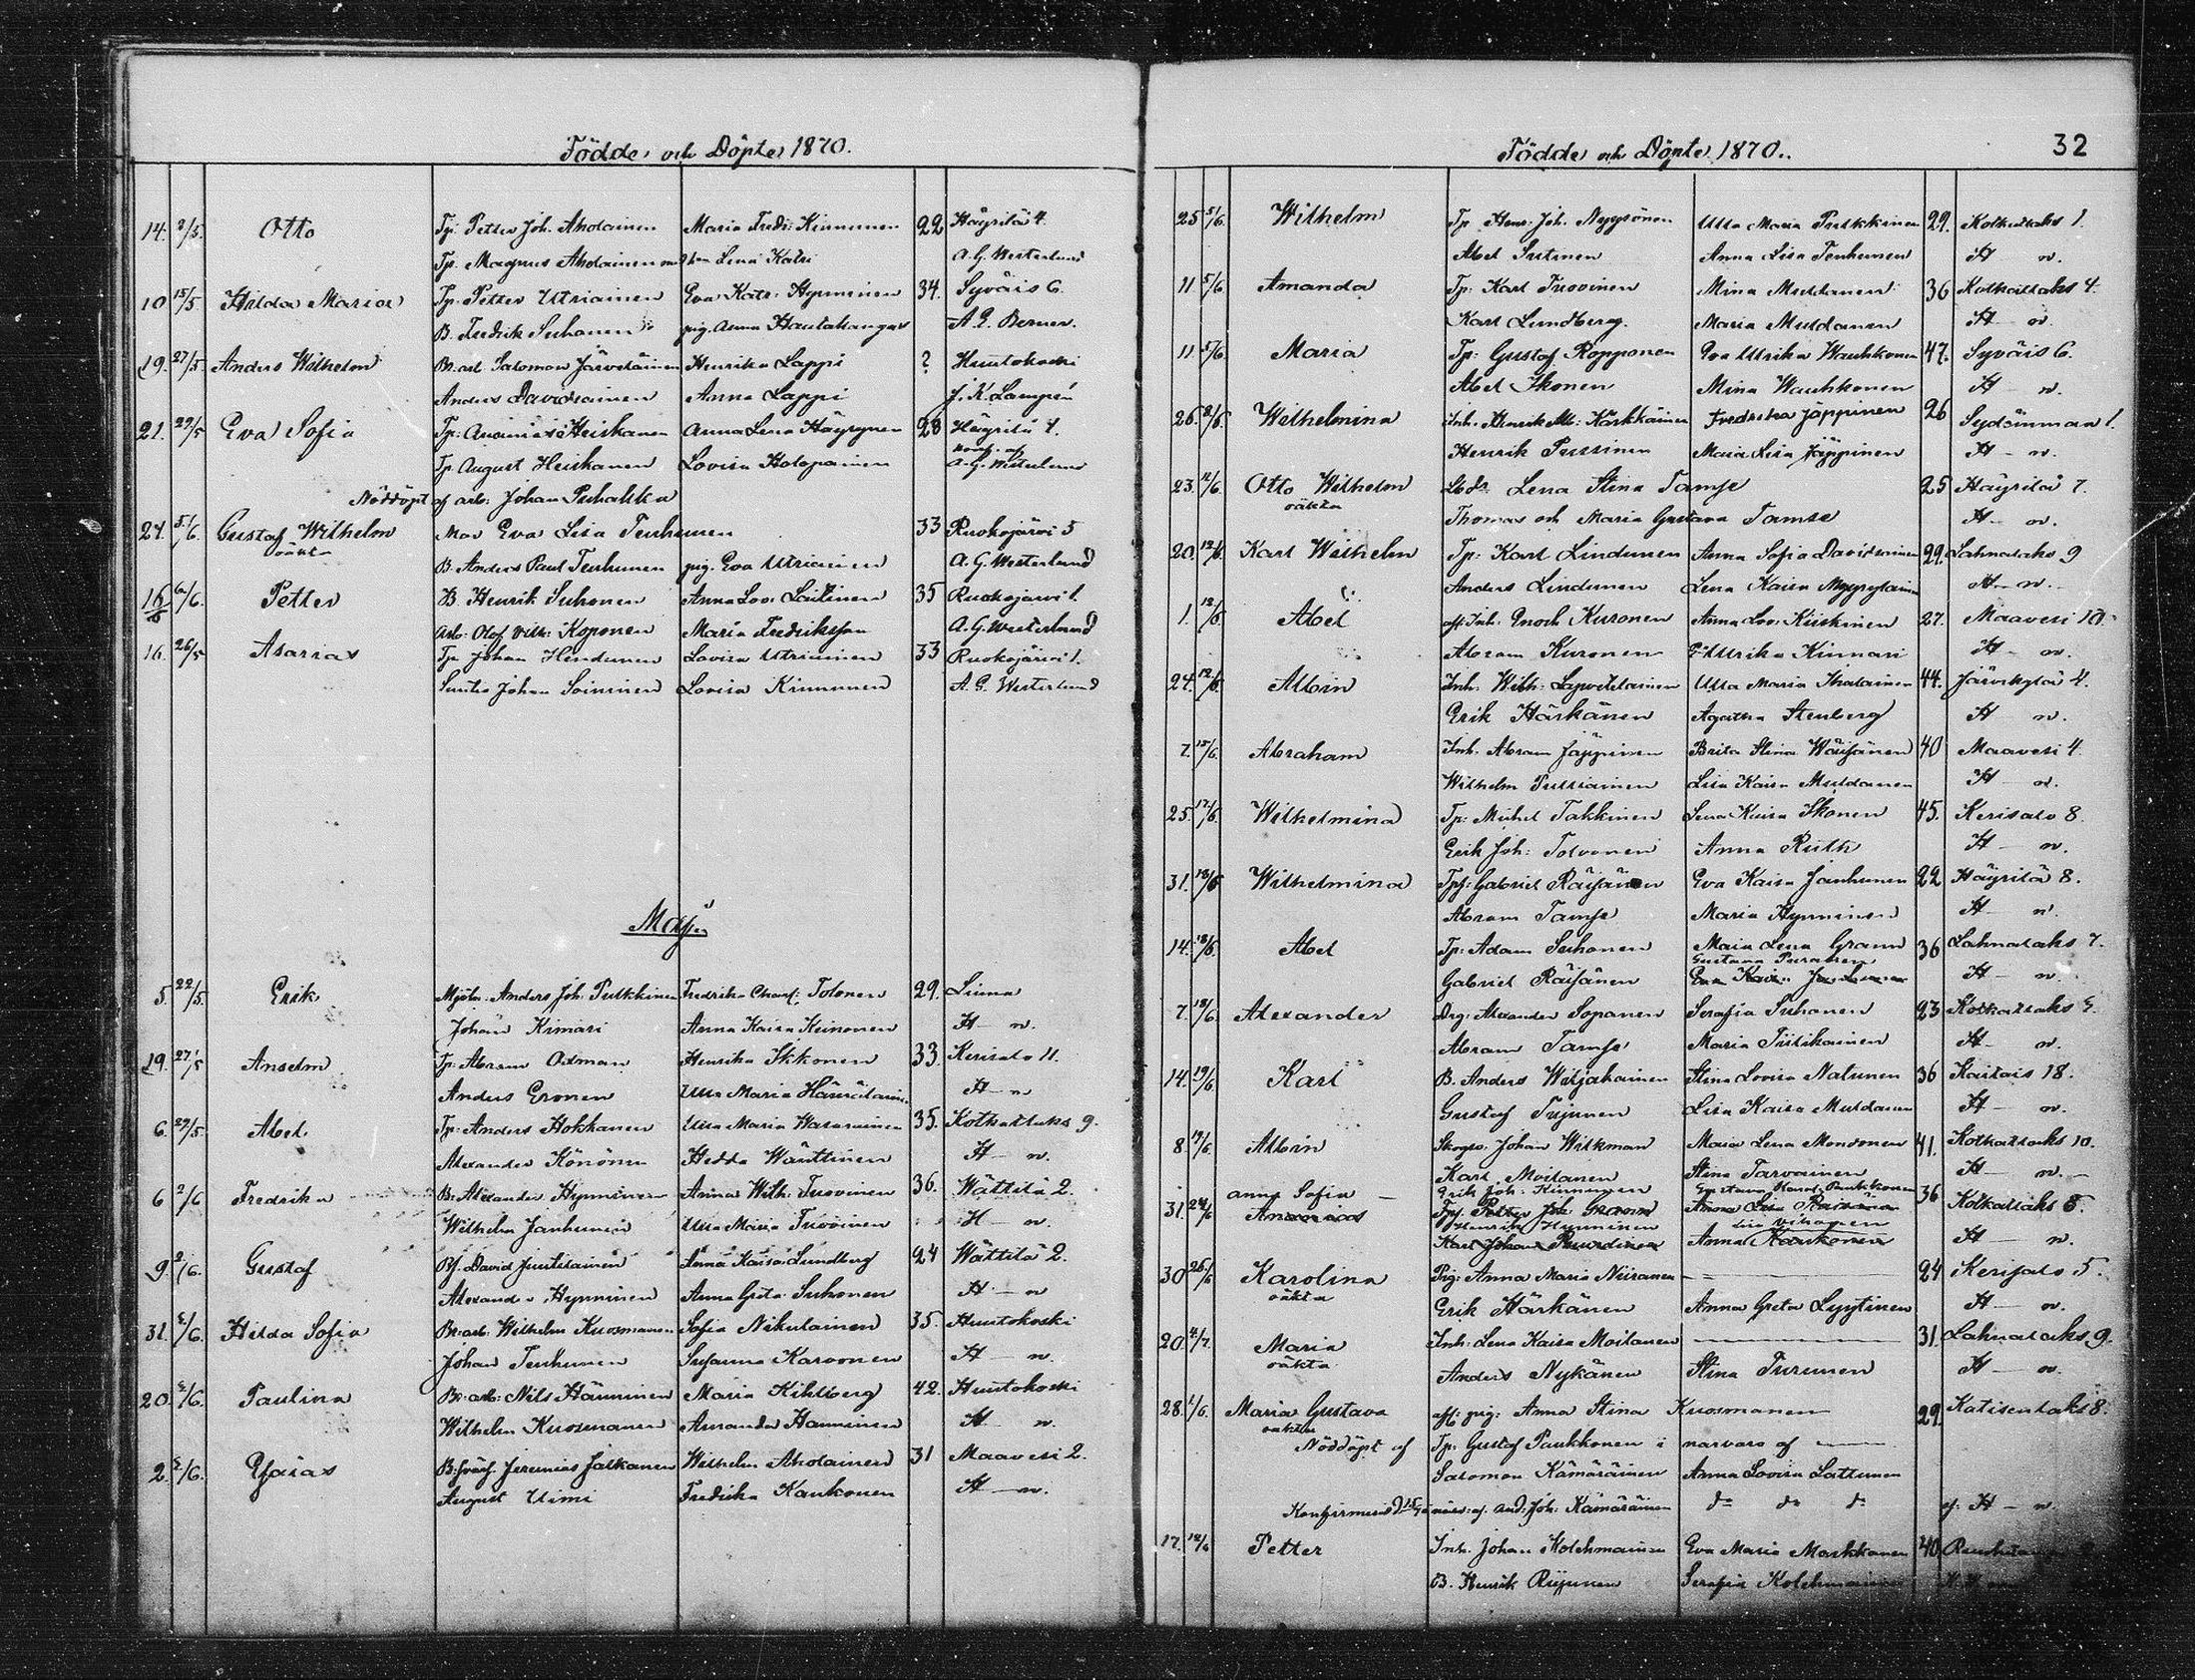 Födde och Döpte 1870.
14. 2/5. Otto Tp: Petter Joh. Aholainen Maria Fredr: Kinnunen 22 Häyrilä 4.
Tp. Magnus Aholainen Lena Katri A. G. Westerlund
10 15/5. Hilda Maria Tp: Petter Utriainen Eva Katr: Hynninen 34. Syväis 6.
B. Fredrik Suhonen pig. Anna Hautakangas A. G. Berner.
19. 27/5. Anders Wilhelm Br. arb. Salomon Järveläinen Henrika Lappi ? Huutokoski
Anders Davidsainen Anna Lappi J. K. Lampén
21. 29/5 Eva Sofia Tp: Ananias Heiskanen Anna Lena Häyrynen 28 Häyrilä 4.
Tp. August Heiskanen Lovisa Holopainen konf. af A. G. Westerlund
Nöddöpt af arb: Johan Puhakka
24. 5/6. Gustaf Wilhelm Eva Lisa Tenhunen 33 Ruokojärvi 5
oäkta
B. Anders Paul Tenhunen pig. Eva Utriainen A. G. Westerlund
6/6. Petter B. Henrik Suhonen Anna Lov: Laitinen 35 Ruokojärvi 1.
Arb: Olof Vilh: Koponen Maria Fredriksson A. G. Westerlund
16. 26/5 Asarias Tp Johan Hendunen Lovisa Utriainen 33 Ruokojärvi 1.
Johan Soininen Lovisa Kinnunen A. G. Westerlund
Maji
5. 22/5. Erik Mjöln. Anders Joh. Pulkkinen Fredrika Charl: Tolonen 29.
Johan Kimari Anna Kaisa Keinonen H—n.
19. 27/5 Anselm Tp: Abram Ödman Henrika Ikkonen 33. Kerisalo 11.
Anders Eronen Ulla Maria H—n
6. 29/5. Abel Tp: Anders Hokkanen Ulla Maria 35. Kotkatlaks 9.
Alexander Könönen Hedda Wänttinen H—n.
6 2/6 Fredrika B: Alexander Hynninen Anna Wilh: Tuovinen 36. Wättilä 2.
Wilhelm Janhunen Ulla Maria Tuovinen H—n.
9. 2/6. Gustaf David Juutilainen Anna Kaisa Lundberg 24 Wättilä 2.
Alexander Hynninen Anna Greta Suhonen H—n
31. /6. Hilda Sofia Br: arb: Wilhelm Kuosmanen Sofia Nikulainen 35. Huutokoski
Johan Tenhunen Susanna Karvonen H—n.
20. /6. Paulina Br: arb: Nils Hänninen Maria Kihlberg 42. Huutokoski
Wilhelm Kuosmanen Amanda Hänninen H—n.
2. /6. Esaias Jeremias Jalkanen Wilhelm: Aholainen 31 Maavesi 2.
August Uimi Fredrika Kaukonen H—n.
Födde och Döpte 1870.. 32
25 5/6. Wilhelm Tp Henr. Joh. Nyyssönen Ulla Maria Pulkkinen 29. Kotkatlaks 1.
Abel Sutinen Anna Lisa Tenhunen H n.
11 5/6. Amanda Tp: Karl Tuovinen Mina Muldanen 36 Kotkatlaks 4.
Karl Lundberg. Maria Muldanen H—n.
11 5/6. Maria Tp: Gustaf Ropponen Eva Ulrika Wauhkonen 47. Syväis 6.
Abel Ikonen Mina Wauhkonen H—n.
26. /6. Wilhelmina Inh. Henrik Kärkkäinen Fredrika Jäppinen 26 Sydänmaa 1.
Henrik Pussinen Maria Lisa Jäppinen H—n.
23. /6. Otto Wilhelm Lena Stina Tamse 25 Häyrilä 7.
oäkta
Thomas och Maria Gustava Tamse H—n.
20. 12/6. Karl Wilhelm Tp: Karl Lindunen Anna Sofia Davidsainen 29. Lahnalaks 9
Anders Lindunen Lena Kaisa H—n.
1. 12/6. Abel Inh: Enoch Kuronen Anna Lov: Kiiskinen 27. Maavesi 10.
Abram Kuronen Ulrika Kinnari H—n.
24. 12/6. Albin Inh: Wilh: Lapveteläinen Ulla Maria Ihalainen 44. Järvikylä 4.
Erik Härkänen Agatha Stenberg H n.
7. 15/6. Abraham Inh. Abram Jäppinen Brita Stina Wäisänen 40 Maavesi 4
Wilhelm Putriainen Lisa Kaisa Muldanen H—n.
25. 17/6. Wilhelmina Tp: Michel Takkinen Lena Kaisa Ikonen 45. Kerisalo 8.
Erik Joh: Tolvanen Anna Ruth H—n.
31. 18/6 Wilhelmina Gabriel Räisänen Eva Kaisa Janhunen 22 Häyrilä 8.
Abram Tamse Maria Hynninen H—n.
14. 18/6. Abel Tp: Adam Suhonen Maria Lena Grann 36 Lahnalaks 7.
Gustava Puranen
Gabriel Räisänen Eva Kaisa Janhunen H—n.
7. 18/6. Alexander Drg: Alexander Sopanen Serafia Suhonen 23 Kotkatlaks
Abram Tamse Maria Tiitikainen H—n.
14. 19/6 Karl B. Anders Wiljakainen Stina Lovisa Natunen 36 Kaitais 18.
Gustaf Tujunen Lisa Kaisa Muldanen H—n.
8. 19/6. Albin Johan Wilkman Maria Lena Mononen 41. Kotkatlaks 10.
Karl Moilanen Stina Tarvainen H—n.
anna Sofia Erik Joh. Kinnunen Gustava Karol: Paukkonen
31. 24/6 Ananias Petter Joh Grann Anna Lisa 36 Kotkatlaks 5.
Henrik Hynninen
Karl Johan Anna Kaukonen H—n.
30 26/6 Karolina Pig: Anna Maria Niiranen 24 Kerisalo 5.
oäkta
Erik Härkänen Anna Greta Lyytinen H—n.
20. /7. Maria Inh: Lena Kaisa Moilanen 31. Lahnalaks 9.
oäkta
Anders Nykänen Stina Turunen H—n.
28. 1/6. Maria Gustava pig: Anna Stina Kuosmanen 29. Katisenlaks 8.
oäkta
Nöddöpt af Tp: Gustaf Paukkonen i närvaro af
Salomon Kämäräinen Anna Lovisa Lattunen
Konfirmerad af And: Joh: Kämäräinen do do do af H—n.
17. 12/6 Petter Inh. Johan Kolehmainen Eva Maria Markkanen 40
B. Henrik Riipinen Serafia Kolehmainen